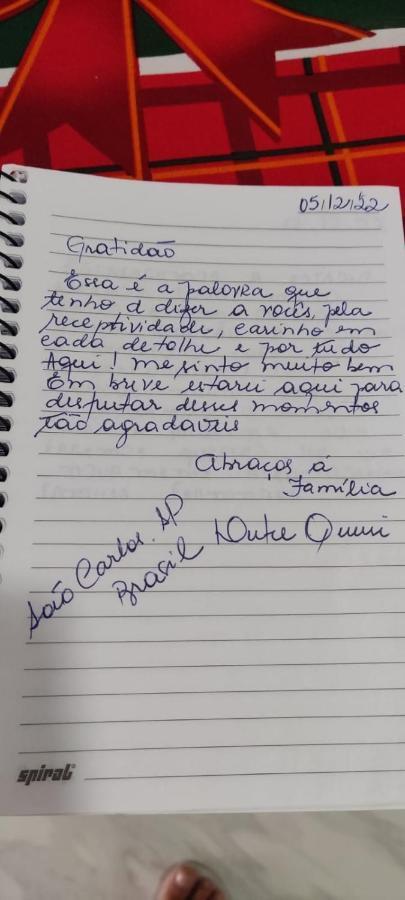 05/12/22
Gratidão
Essa é a palavra que
tenho a dizer a vocês, pela
receptividade, carinho em
cada detalhe e por tudo
Aqui! me sinto muito bem
Em breve estarei aqui para
disputar desses momentos
tão agradaveis
Abraços á
Família
São Carlos. SP
Brasil
spiral®